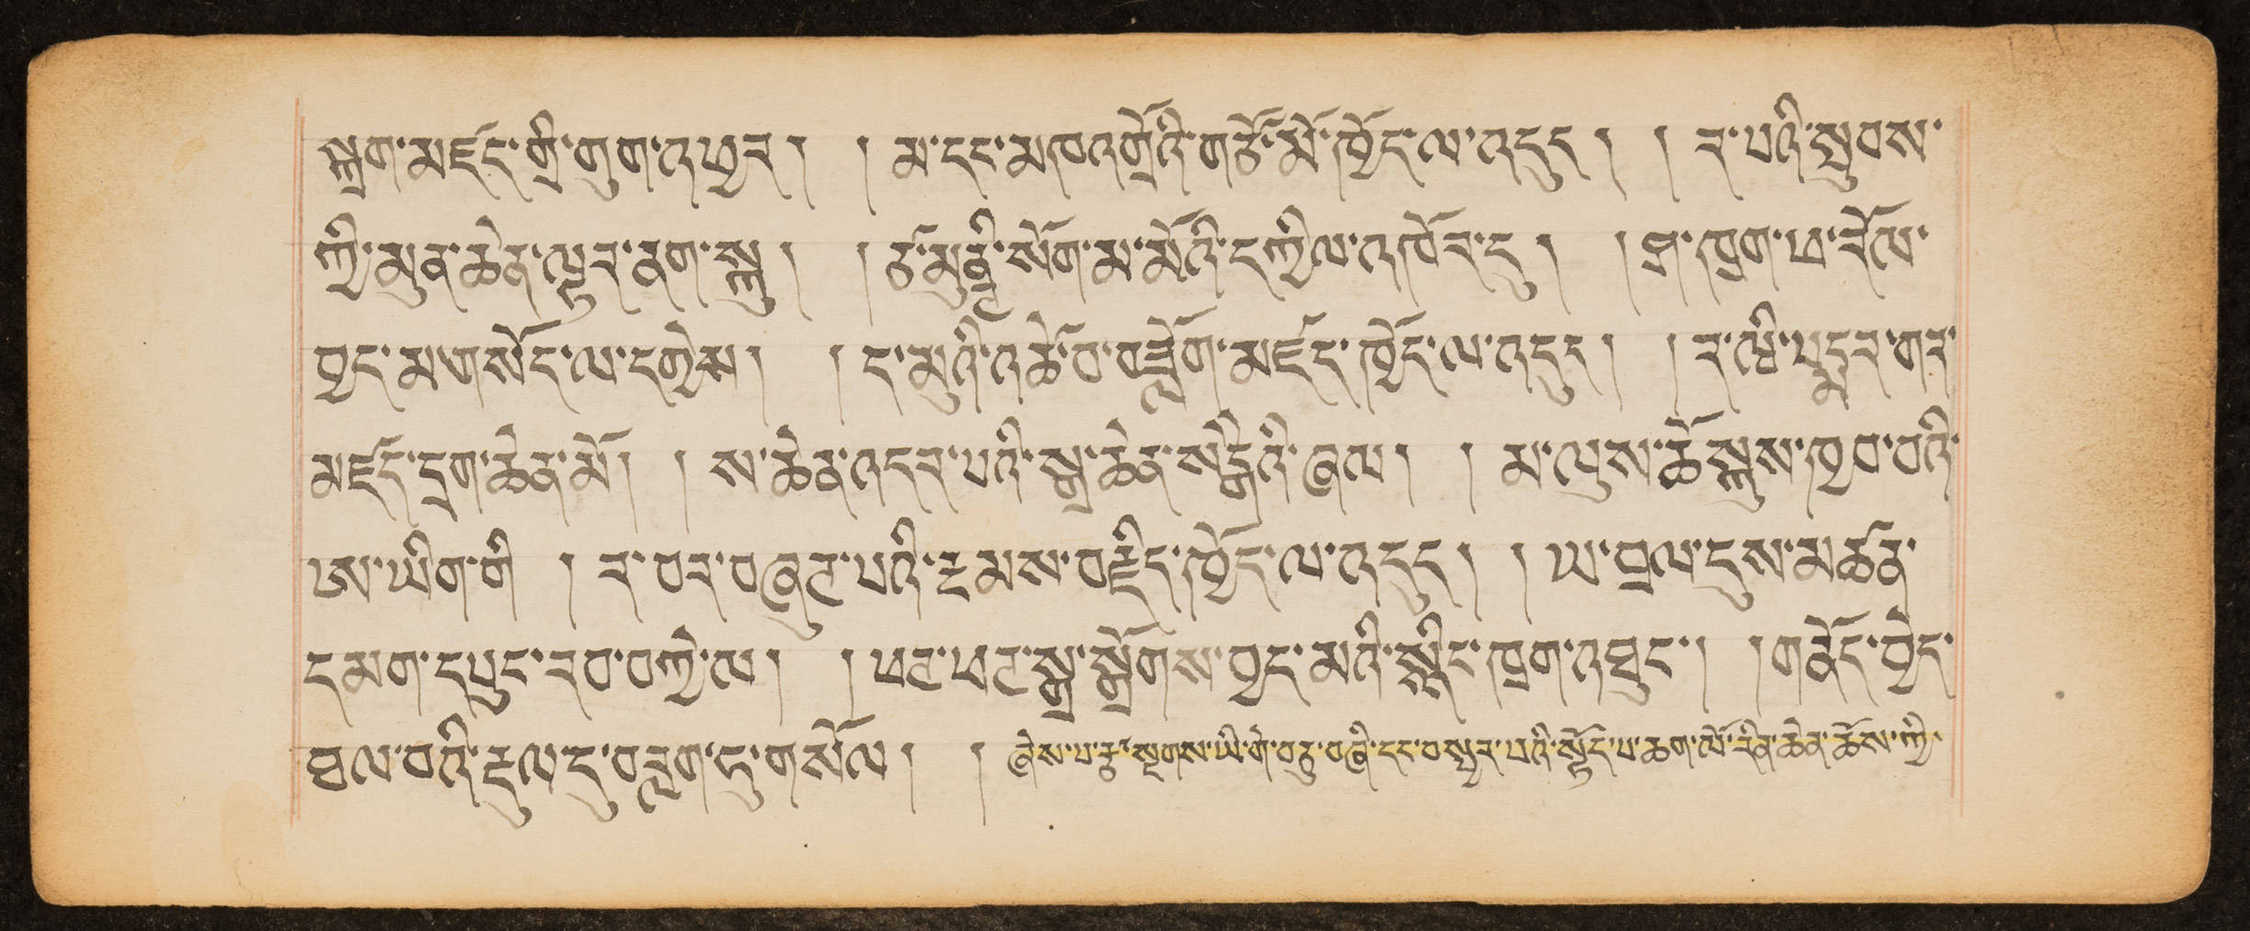 སྒྲག་མཛད་གྲི་གུག་འཕྱར། །མ་དང་མཁའགྲོའི་གཙོ་མོ་ཁྱོད་ལ་འདུད། །ར་པའི་སྲུབས་
ཀྱི་མུན་ཆེན་ལྟར་ནག་སྐུ། །ཙ་མུནྜི་སོག་མ་མོའི་དཀྱིལ་འཁོར་དུ། །ཁྲག་ཕ་རོལ་
བྱད་མ་གསོད་ལ་དགྱེས། །ད་མའི་འཚེ་བ་བཟློག་མཛད་ཁྱོད་ལ་འདུད། །ར་ལྤའི་པདྨར་གར་
མཛད་དྲག་ཆེན་མོ། །ས་ཆེན་འདར་པའི་སྒྲ་ཆེན་སྒྲོགའི་ཞལ། །མ་ལུས་ཆོསྐུས་ཁྱབ་བའི་
ཨ་ཡིག་གི །ར་བར་བཞད་པའི་རྔམས་བརྗིད་ཁྱོད་ལ་འདུད། །ཡ་བྲལ་དུས་མཚན་
དམག་དཔུང་རབ་བཀྱེ་ལ། །ཕཊ་ཕཊ་སྒྲ་སྒྲོགས་བྱད་མའི་སྙིང་ཁྲག་འཐུང་། །གནོད་བྱེད་
ཐལ་བའི་རྡུལ་དུ་བརླག་ཏུ་གསོལ། །ཞེས་པ་རྩ་སྔགས་ཡི་གེ་བཅུ་བཞི་དང་བསྦྱར་པའི་སྟོད་པ་ཆག་ལོ་རིན་ཆེན་ཆོས་ཀྱི་